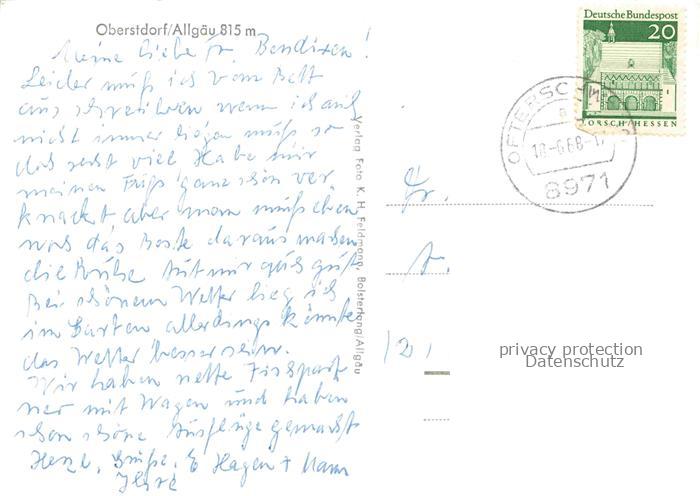 Oberstdorf/Allgäu 815 m
Meine liebe Fr. Bendixen!
Leider muß ich vom Bett
aus schreiben wenn ich auch
nicht immer liegen muß so
doch sehr viel Habe mir
meinen Fuß ganz schön ver
knackst aber man muß eben
noch das Beste daraus machen
die Ruhe tut mir auch gut
Bei schönem Wetter lieg ich
im Garten allerdings könnte
das Wetter besser sein.
Wir haben nette
mit Wagen und haben
schon schöne Ausflüge gemacht
Herzl. Grüße. Hagen + Mann
Ihre
Verlag Foto K. H. Feldmann, Bolsterlang/Allgäu
Deutsche Bundespost
20
LORSCH/HESSEN
OFTERSCH
a
18-6.68-1
8971
Fr.
privacy protection
Datenschutz